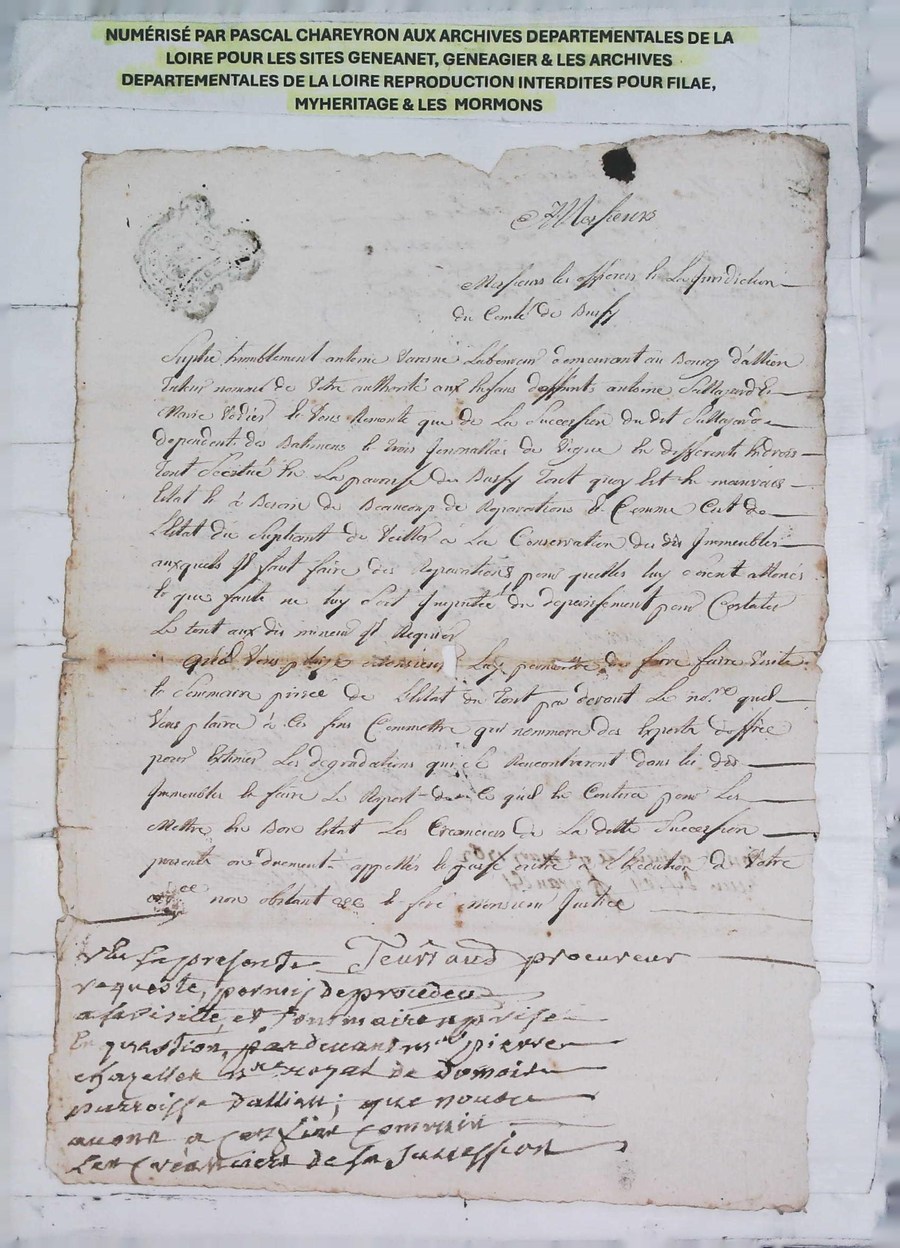 NUMÉRISÉ PAR PASCAL CHAREYRON AUX ARCHIVES DEPARTEMENTALES DE LA
LOIRE POUR LES SITES GENEANET, GENEAGIER & LES ARCHIVES
DEPARTEMENTALES DE LA LOIRE REPRODUCTION INTERDITES POUR FILAE,
MYHERITAGE & LES MORMONS
A Messieurs
Messieurs les officiers de La Jurisdiction
du Comté de Bussy
Suplie humblement antoine Varenne Laboureur demeurant au Bourg d'allieu
Tuteur nommé de Votre authorité aux Enfans deffunts antoine
Marie Vedier Et Vous Remontre que de La Succession du dit
dependent des Batimens Et Trois Journallées de Vigne En differents Endrois
Tout Scitué En La paroisse de Bussy Tout quoy Est En mauvais
Etat Et à Besoin de Beaucoup de Reparations Et Comme C'est de
L'Etat du Supliant de Veiller à La Conservation des dits Immeubles
auxquels Il faut faire des Reparations pour quelles luy soient alloués
Et que faute ne luy Soit Imputée du deperissement pour Constater
Le tout aux dits mineurs Il Requier
Qu'il Vous plaise Monsieur Luy permettre de faire faire Visite
Et Sommaire prisée de L'Etat du Tout par devant Le no.re quil
Vous plaira à Ces fins Commettre qui nommera des Experts d'office
pour Estimer Les degradations qui se Rencontreront dans les dits
Immeubles Et faire Le Raport de Ce quil En Contera pour Les
Mettre En Bon Etat Les Creanciers de La ditte Succession
presents ou duement appellés Et passé outre à L'Execution de Votre
ord.ce non obstant &c Et feré Monsieur Justice
Veu La presente Teurtaud procureur
requeste, permis de proceder
a la visitte, et sommaire prisée
En question, pardevant m.e pierre
chazelles n.re royal de
parroisse d'allieu; que nous
avons a ces fins commis
Les Créanciers de la succession